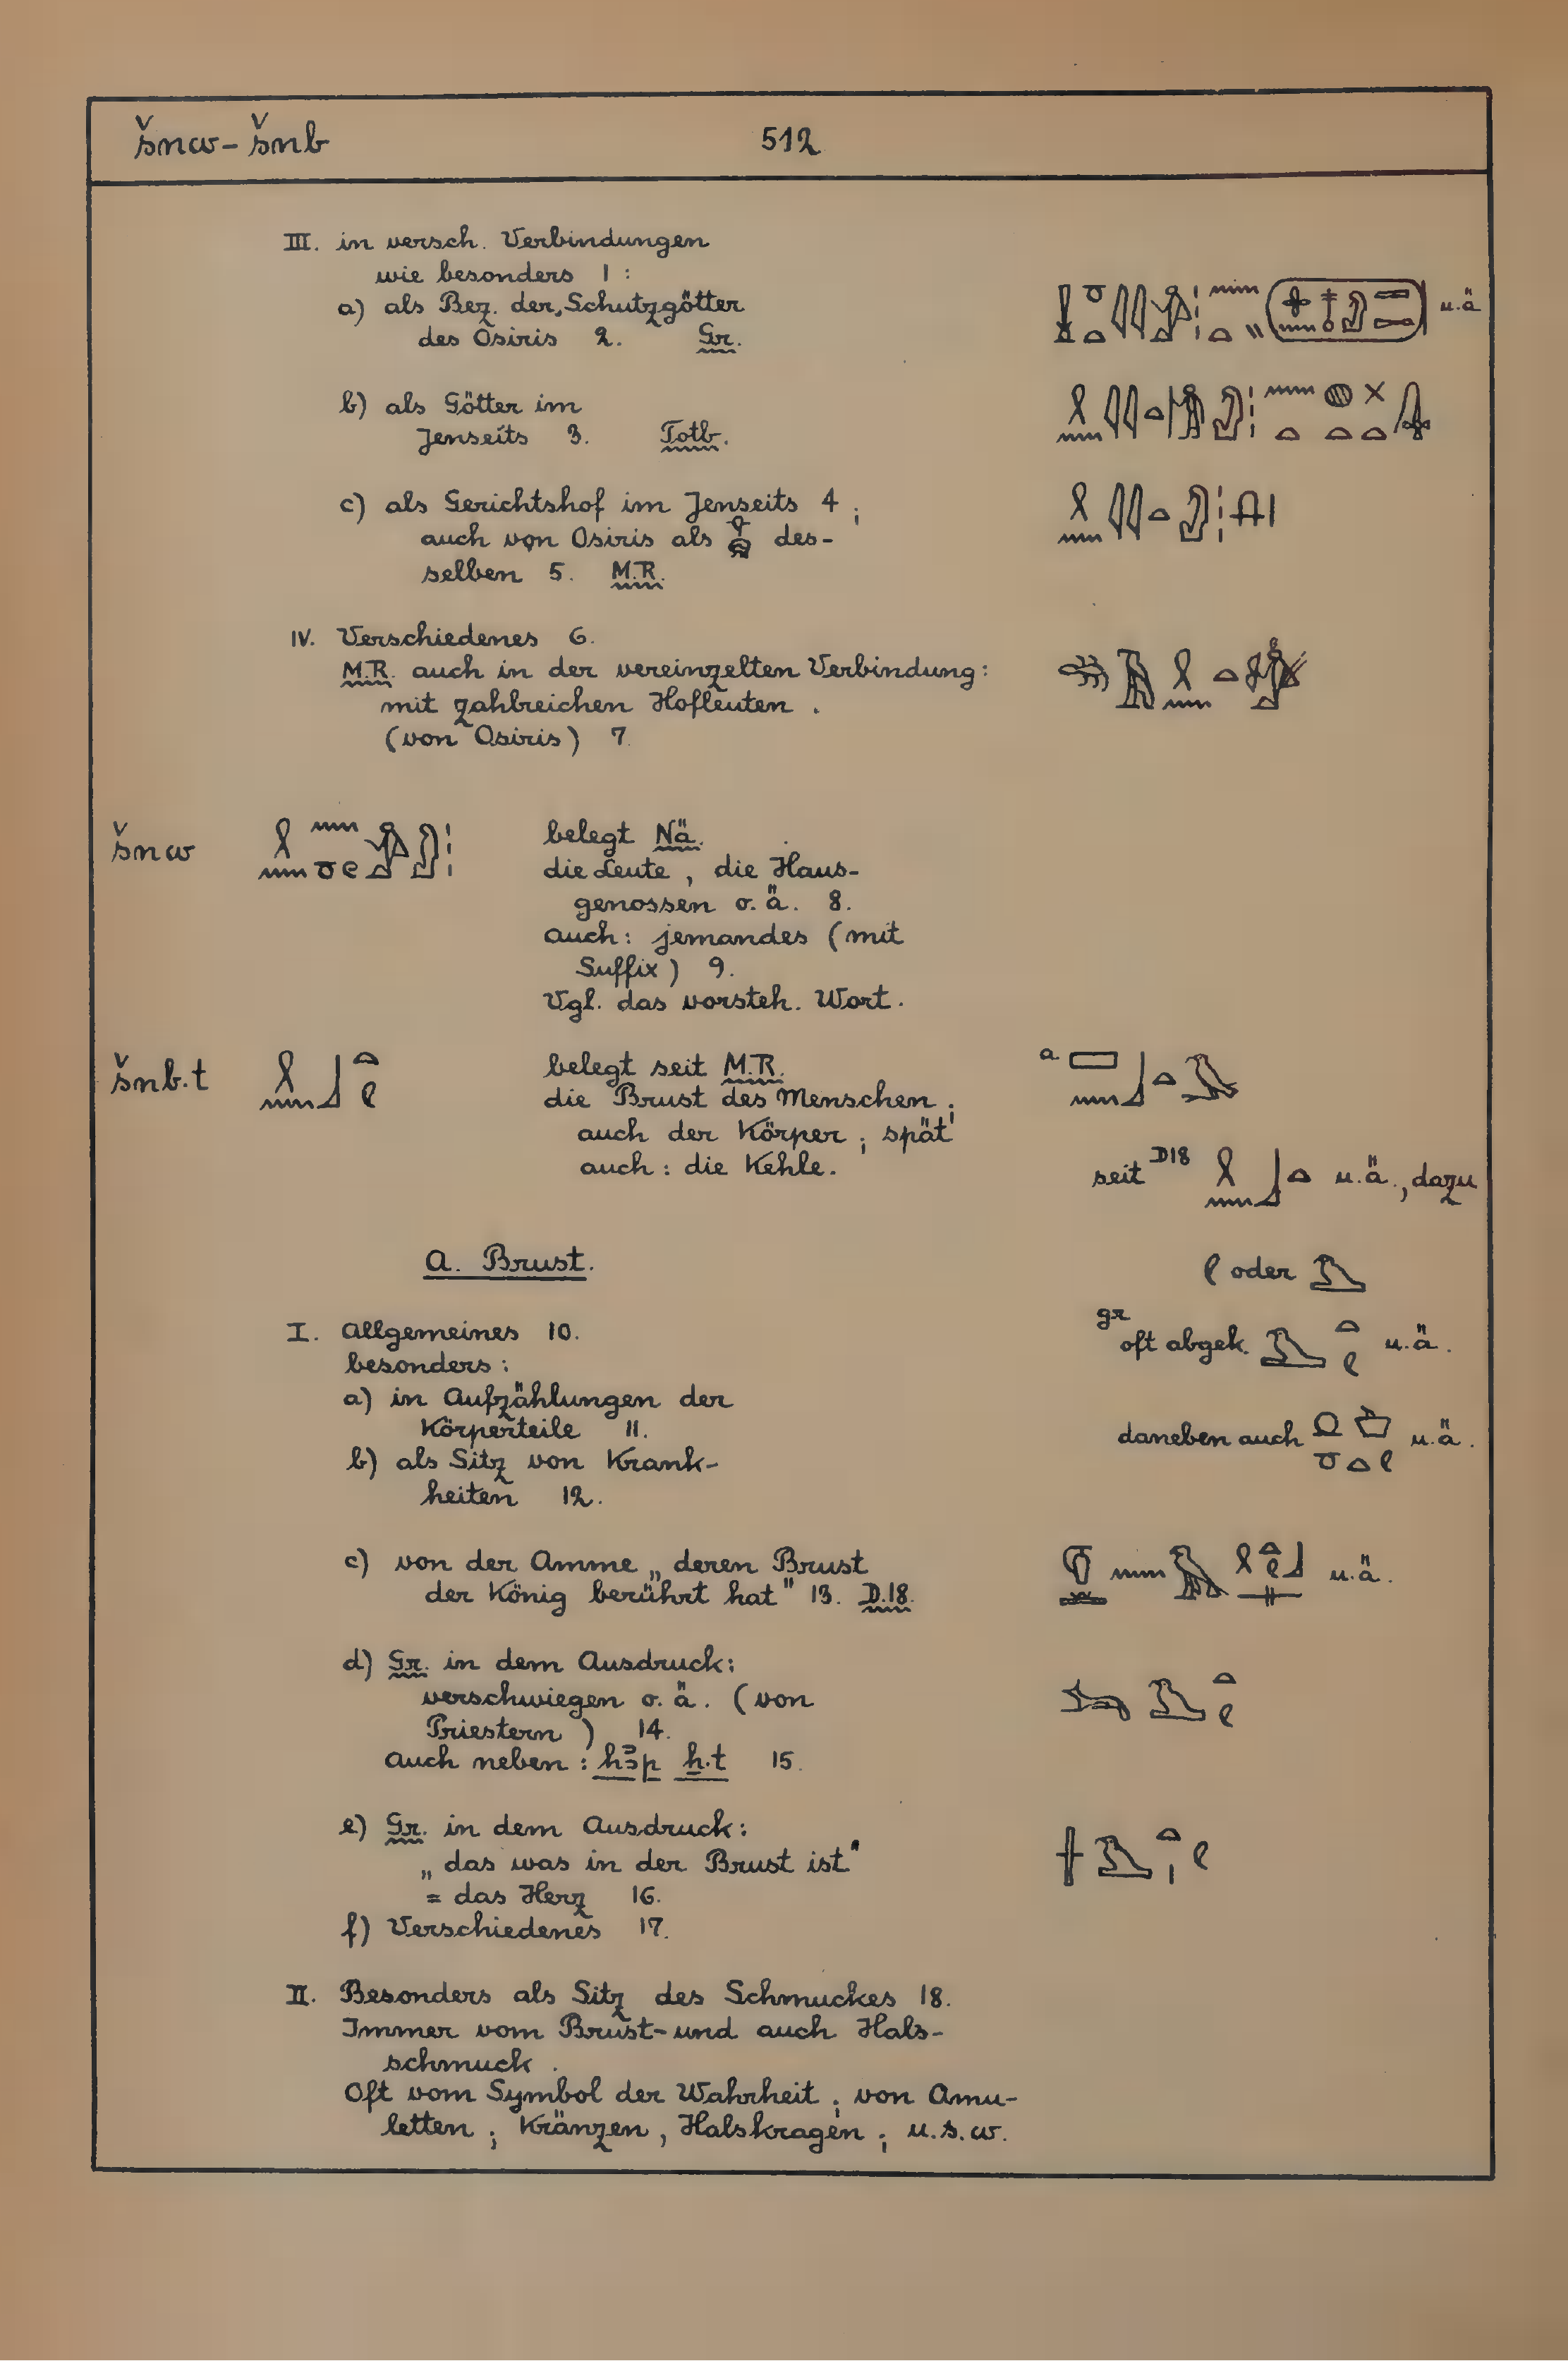 šnw – šnb 512
III. in versch. Verbindungen
wie besonders 1 :
a) als Bez. der Schutzgötter
des Osiris 2. Gr. u.ä
b) als Götter im
Jenseits 3. Totb.
c) als Gerichtshof im Jenseits 4 ;
auch von Osiris als des-
selben 5. M.R.
IV. Verschiedenes 6.
M.R. auch in der vereinzelten Verbindung:
mit zahlreichen Hofleuten .
(von Osiris) 7.
šnw belegt Nä.
die Leute , die Haus-
genossen o.ä. 8.
auch: jemandes (mit
Suffix) 9.
Vgl. das vorsteh. Wort.
šnb.t belegt seit M.R. a.
die Brust des Menschen ;
auch der Körper ; spät
auch : die Kehle.
seit D18 u.ä., dazu
ℓ oder
gr oft abgek. u.ä.
daneben auch u.ä.
A. Brust.
I. Allgemeines 10.
besonders :
a) in Aufzählungen der
Körperteile 11.
b) als Sitz von Krank-
heiten 12.
c) von der Amme „deren Brust
der König berührt hat" 13. D.18. u.ä.
d) Gr. in dem Ausdruck:
verschwiegen o.ä. (von
Priestern) 14.
auch neben : ḥꜣp ẖ.t 15.
e) Gr. in dem Ausdruck:
„das was in der Brust ist"
= das Herz 16.
f) Verschiedenes 17.
II. Besonders als Sitz des Schmuckes 18.
Immer vom Brust- und auch Hals-
schmuck .
Oft vom Symbol der Wahrheit ; von Amu-
letten ; Kränzen , Halskragen ; u.s.w.